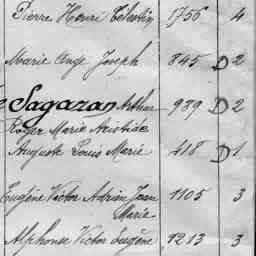 Pierre Henri Célestin 1756 4
Marie Ange Joseph 845 D 2
Sagazan Arthur 939 D 2
Roger Marie Aristide
Auguste Louis Marie 418 D 1
Eugène Victor Adrien Jean 1105 3
Marie
Alphonse Victor Eugène 1213 3